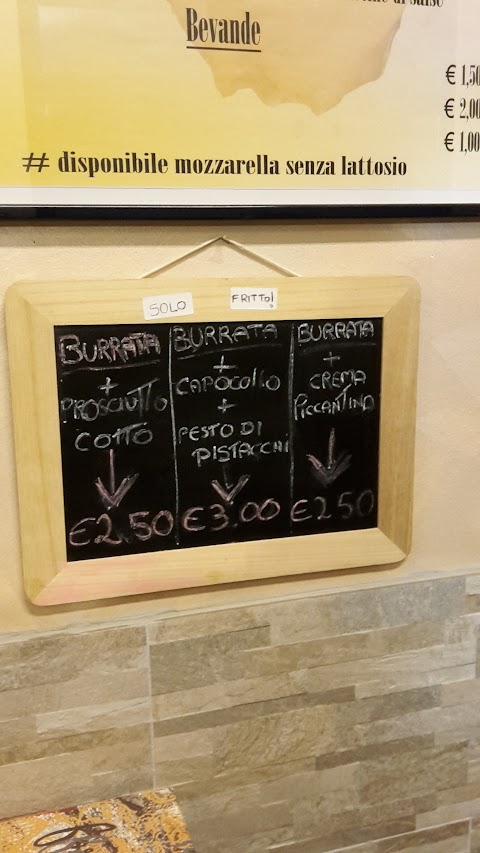 Bevande
€ 1,50
€ 2,00
€ 1,00
# disponibile mozzarella senza lattosio
SOLO
FRITTO!
BURRATA
+
PROSCIUTTO
COTTO
€2.50
BURRATA
+
CAPOCOLLO
+
PESTO DI
PISTACCHI
€3.00
BURRATA
+
CREMA
PICCANTINA
€2.50